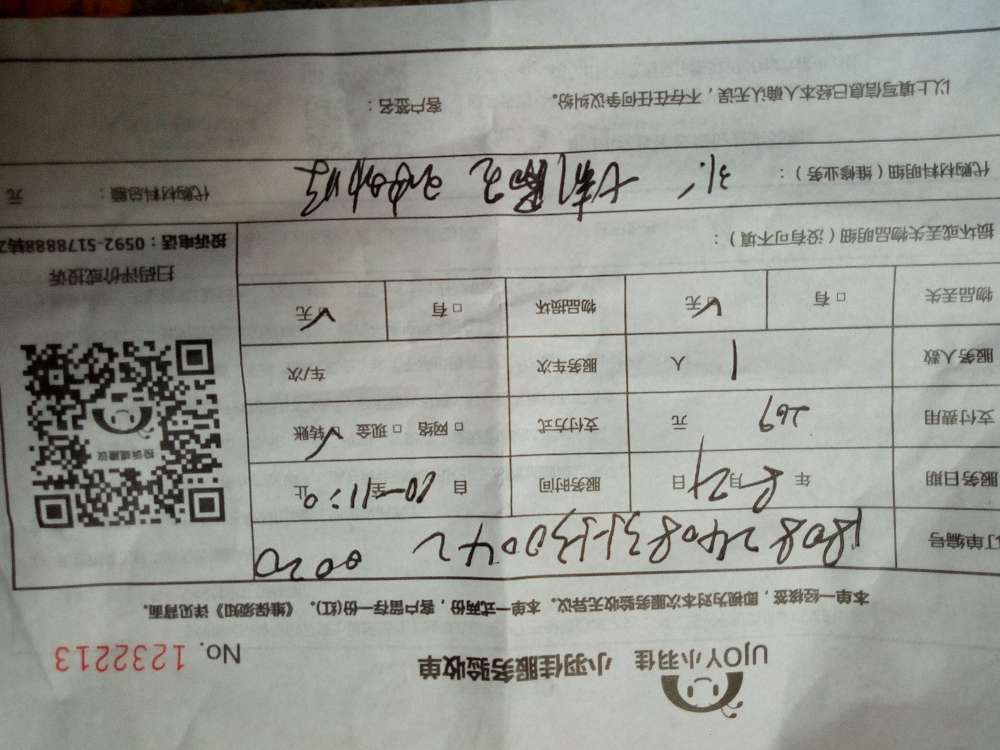 UJOY小羽佳 小羽佳服务验收单
No. 1232213
本单一经核签，即视为对本次服务验收无异议。本单一式两份，客户留存一份(红)。《维保须知》详见背面。
订单编号
服务日期 年 8月29日 服务时间 自 10 至 11:0 止
支付费用 269 元 支付方式 □网络 □现金 ☑转账
服务人数 1 人 服务车次 车/次
物品丢失 □有 ☑无 物品损坏 □有 ☑无
投诉或建议
扫码评价或投诉
投诉电话：0592-5178888转2
损坏或丢失物品明细（没有可不填）：
代购材料明细（维修业务）： 代购材料总额： 元
以上填写信息已经本人确认无误，不存在任何争议纠纷。 客户签名：